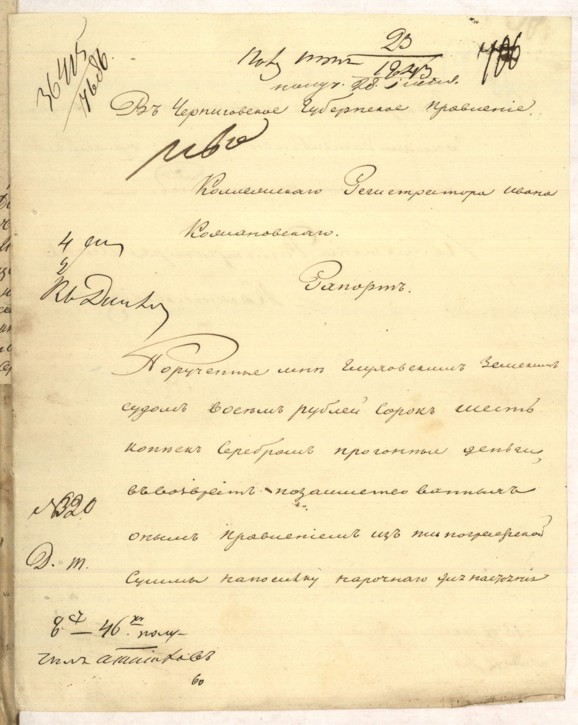 36405
7686
23
1843
получ. 28 июля.
Въ Черниговское Губернское Правленіе.
Коллежскаго Регистратора Ивана
Комановскаго.
Рапортъ.
Порученные мнѣ Глуховскимъ Земскимъ
судомъ восемь рублей сорокъ шесть
копѣекъ серебромъ прогонныя деньги,
въ возвратъ позаимствованнымъ
онымъ Правленіемъ изъ типографской
суммы на посылку нарочнаго
№320
Д. т.
8 – 46 полу-
чилъ